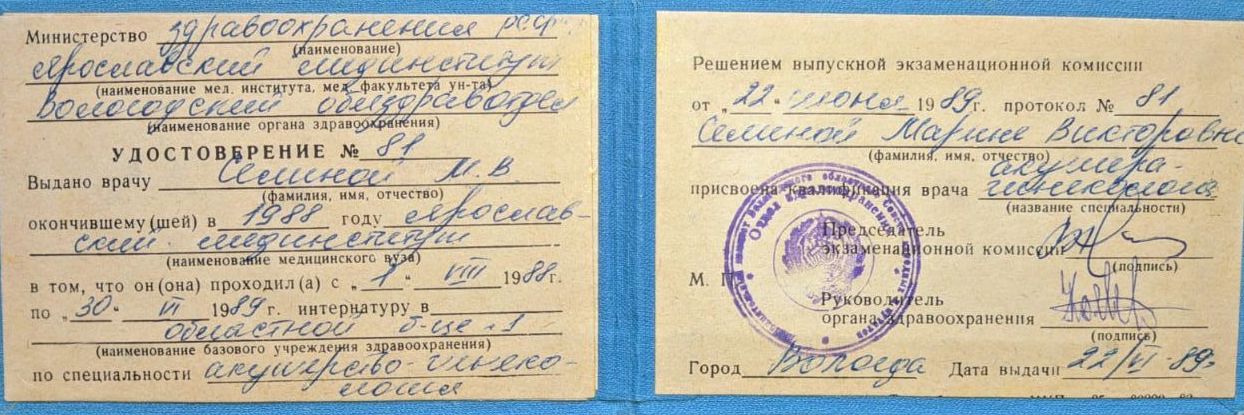 Министерство здравоохранения РСФСР
(наименование)
Ярославский мединститут
(наименование мед. института, мед. факультета ун-та)
Вологодский облздравотдел
(наименование органа здравоохранения)
УДОСТОВЕРЕНИЕ № 81
Выдано врачу Семиной М.В
(фамилия, имя, отчество)
окончившему (шей) в 1988 году Ярослав-
ский мединститут
(наименование медицинского вуза)
в том, что он (она) проходил (а) с „1“ VIII 1988 г.
по „30“ VI 1989 г. интернатуру в
областной б-це №1
(наименование базового учреждения здравоохранения)
по специальности акушерство-гинеко-
логия
Решением выпускной экзаменационной комиссии
от „22“ июня 1989 г. протокол № 81
Семиной Марине Викторовне
(фамилия, имя, отчество)
акушера-
присвоена квалификация врача гинеколога
(название специальности)
Председатель
экзаменационной комиссии
(подпись)
М. П.
Руководитель
органа здравоохранения
(подпись)
Город Вологда Дата выдачи 22/VI-89г